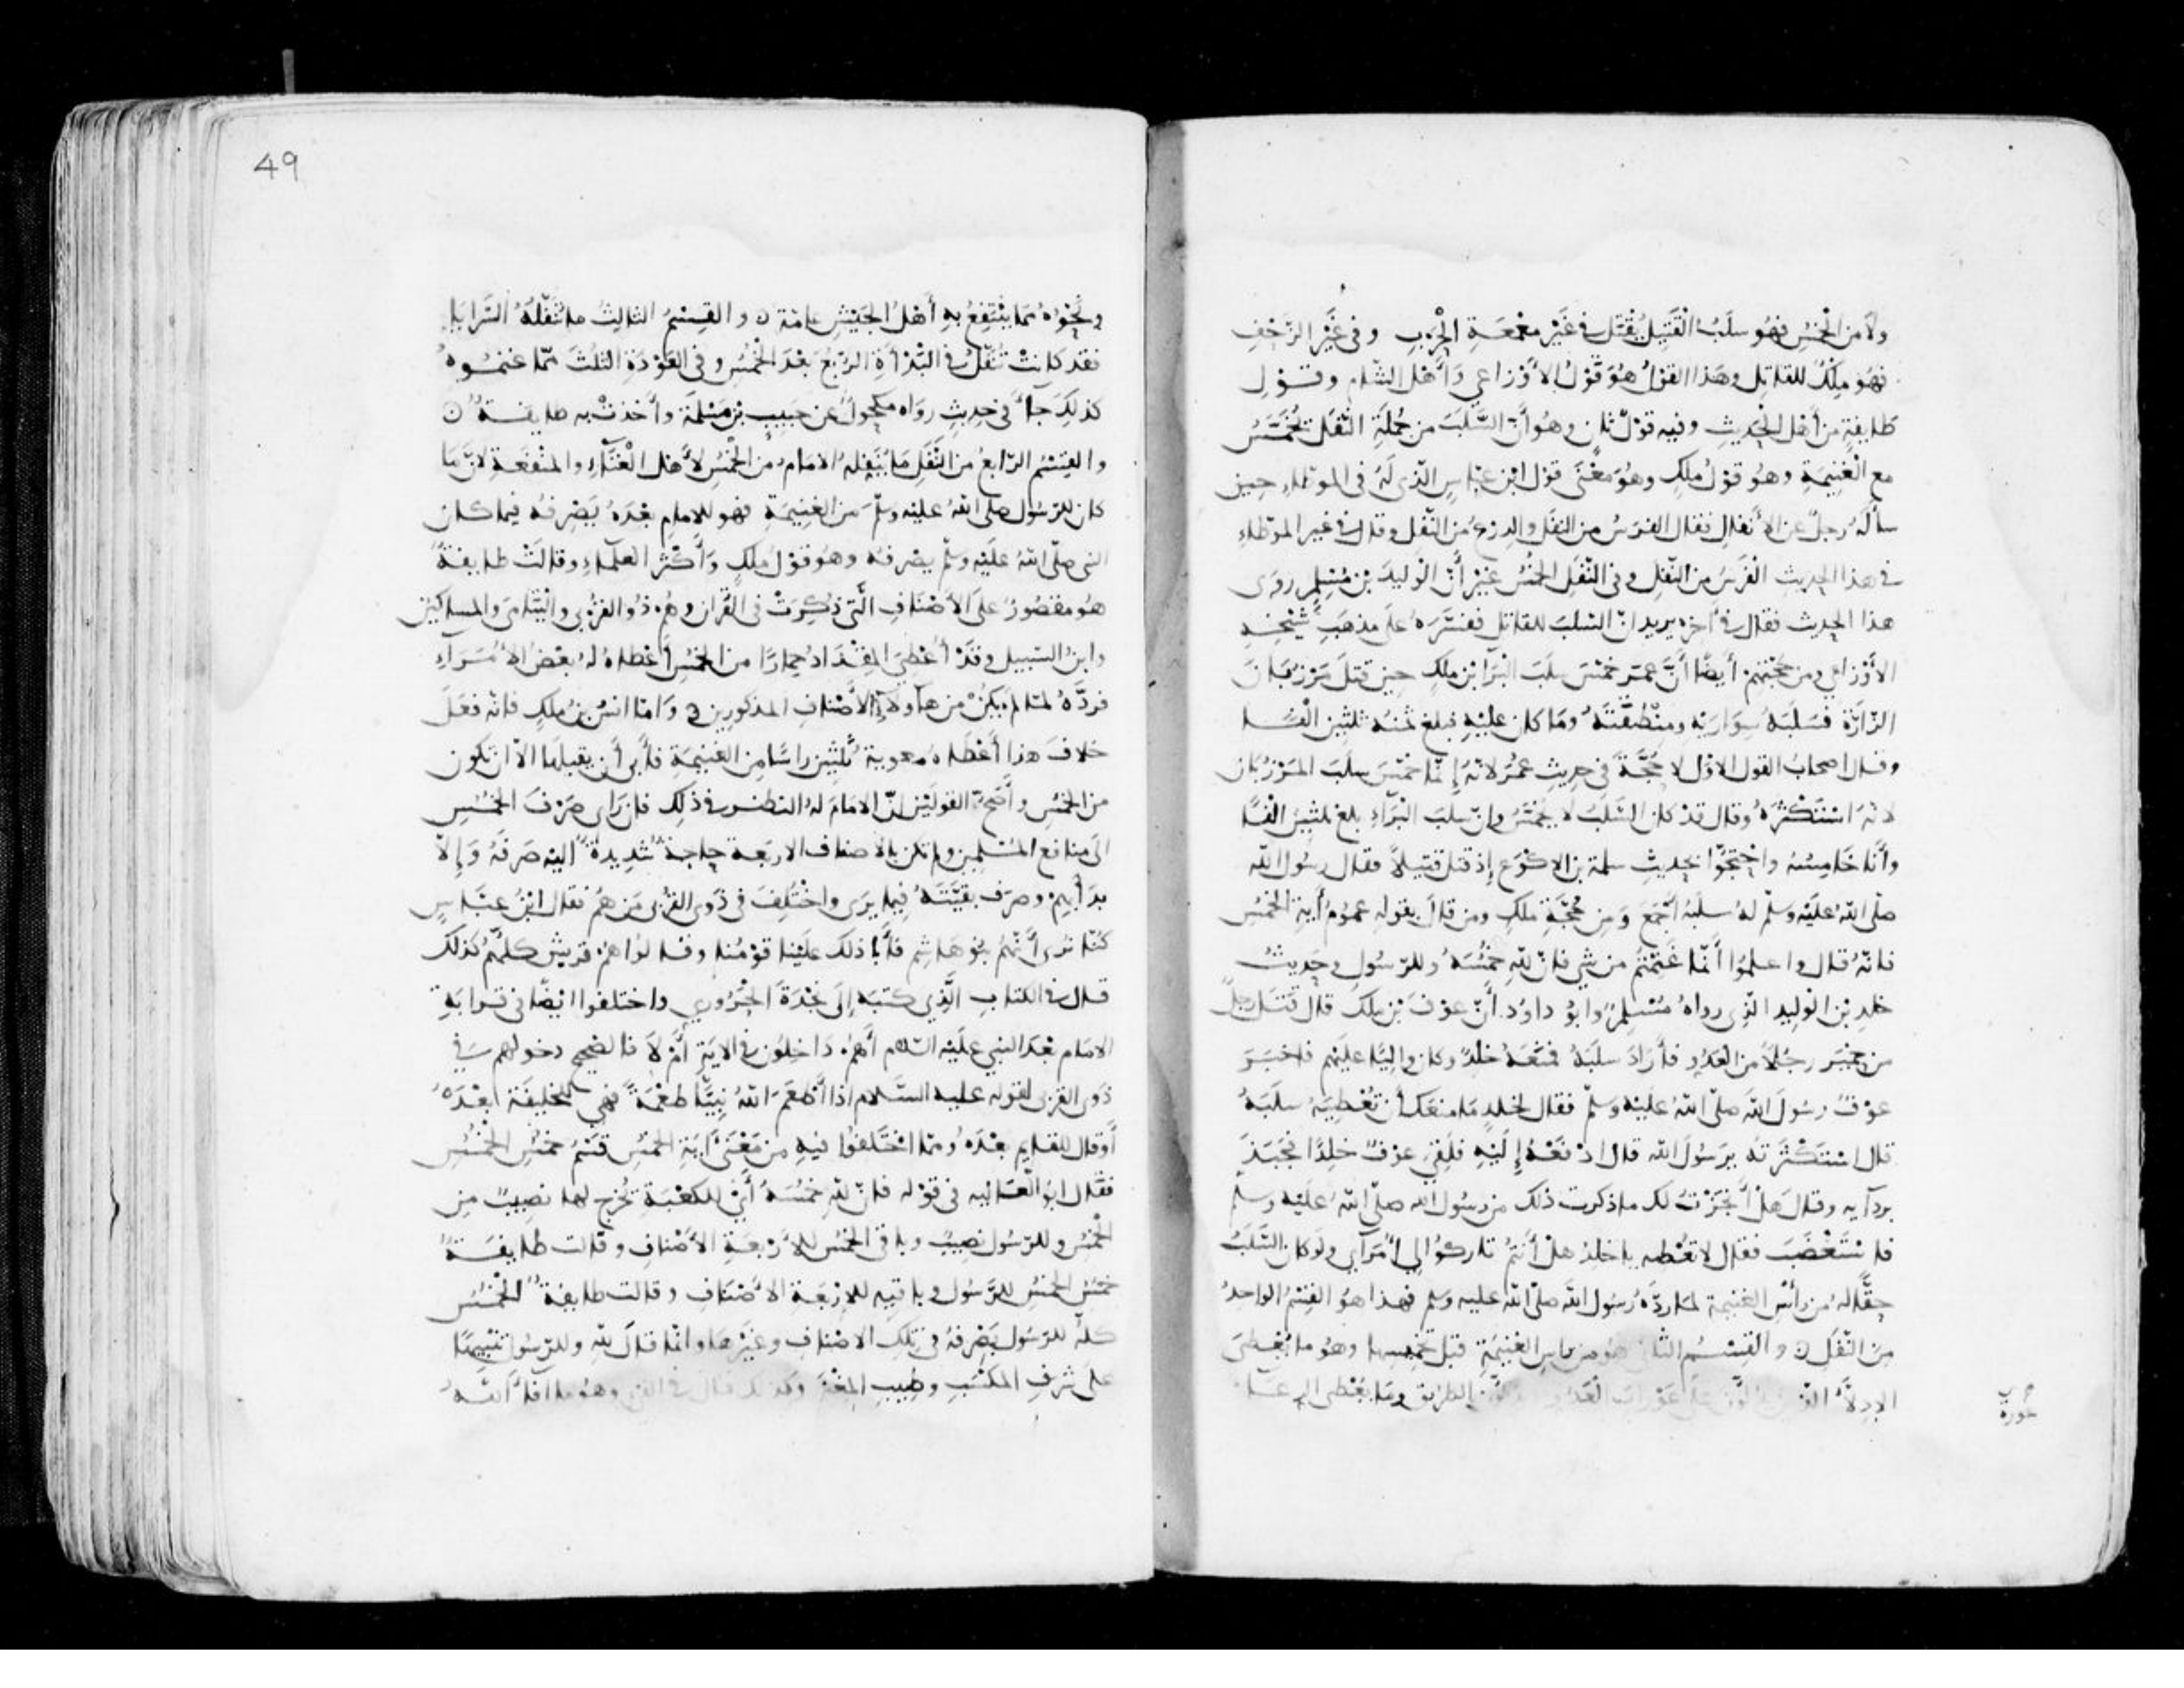 ولا من الخمس فهو سلب القتيل يقتل في غير معمعة الحرب وفي غير الزحف
فهو ملك للقاتل وهذا القول هو قول الأوزاعي وأهل الشام وقول
طايفة من أهل الحديث وفيه قول ثان وهو أن السلب من جملة النفل تخمس
مع الغنيمة وهو قول ملك وهو معنى قول ابن عباس الذي له في الموطاء حين
سأله رجل عن الأنفال فقال الفرس من النفل والدرع من النفل وقال في غير الموطاء
في هذا الحديث الفرس من النفل وفي النفل الخمس غير أن الوليد بن مسلم روى
هذا الحديث فقال في آخره يريد ان السلب للقاتل ففسره على مذهب شيخه
الأوزاعي ومن حجتهم أيضا أن عمر خمس سلب البرا بن ملك حين قتل مرزبان
الزارة فسلبه سواريه ومنطقته وما كان عليه فبلغ ثمنه ثلثين الفا
وقال اصحاب القول الاول لا حجة في حديث عمر لانه إنما خمس سلب المرزبان
لانه استكثره وقال قد كان السلب لا يخمس وإن سلب البراء بلغ ثلثين الفا
وأنا خامسه واحتجوا بحديث سلمة بن الاكوع إذ قتل قتيلا فقال رسول الله
صلى الله عليه وسلم له سلبه أجمع ومن حجة ملك ومن قال بقوله عموم أية الخمس
فانه قال واعلموا أنما غنمتم من شي فان لله خمسه وللرسول وحديث
خلد بن الوليد الذي رواه مسلم وابو داود أن عوف بن ملك قال قتل رجل
من حمير رجلا من العدو فأراد سلبه فمنعه خلد وكان واليا عليهم فاخبر
عوف رسول الله صلى الله عليه وسلم فقال لخلد ما منعك أن تعطيه سلبه
قال استكثرته يرسول الله قال ادفعه إليه فلقي عوف خلدا فجبذ
بردآيه وقال هل أنجزت لك ما ذكرت ذلك من رسول الله صلى الله عليه وسلم
فاستغضب فقال لا تعطه يا خلد هل أنتم تاركوا لي أمرآي ولو كان السلب
حقا له من رأس الغنيمة لما رده رسول الله صلى الله عليه وسلم فهذا هو القسم الواحد
من النفل ⊙ والقسم الثاني هو من راس الغنيمة قبل تخميسها وهو ما يعطى
الادلاء على عورات العدو الطريق وما يعطى
عورة
49
ونحوه مما ينتفع به أهل الجيش عامة ⊙ والقسم الثالث ما تنفله السرايا
فقد كانت تنفل في البدأة الربع بعد الخمس وفي العودة الثلث مما غنموه
كذلك جاء في حديث رواه مكحول عن حبيب بن مسلمة وأخذت به طايفة ⊙
والقسم الرابع من النفل ما ينفله الامام من الخمس لأهل الغناء والمنفعة لان ما
كان للرسول صلى الله عليه وسلم من الغنيمة فهو للامام بعده يصرفه فيما كان
النبي صلى الله عليه وسلم يصرفه وهو قول ملك وأكثر العلماء وقالت طايفة
هو مقصور على الاصناف التي ذكرت في القران وهم ذوالقربى واليتامى والمساكين
وابن السبيل وقد أعطي المقداد حمارا من الخمس أعطاه له بعض الأمرآء
فرده لما لم يكن من هآولاء الأصناف المذكورين ⊙ وأما انس بن ملك فانه فعل
خلاف هذا أعطاه معوية ثلثين راسا من الغنيمة فأبى أن يقبلها الا ان تكون
من الخمس وأصح القولين انّ الامام له النظر في ذلك فان راى صرف الخمس
الى منافع المسلمين ولم تكن بالأصناف الاربعة حاجة شديدة اليه صرفه وإلا
بدأ بهم وصرف بقيته فيما يرى واختلف في ذوي القربى من هم فقال ابن عباس
كنا نرى أنهم بنو هاشم فأبا ذلك علينا قومنا وقالوا هم قريش كلهم كذلك
قال في الكتاب الذي كتبه إلى نجدة الحروري واختلفوا ايضا في قرابة
الامام بعد النبي عليه السلام أهم داخلون في الاية أم لا فالصحيح دخولهم في
ذوي القربى لقوله عليه السلام اذا أطعم الله نبيا طعمة فهي للخليفة بعده
أو قال للقايم بعده ومما اختلفوا فيه من معنى آية الخمس قسم خمس الخمس
فقال ابو العالية في قوله فان لله خمسه أي للكعبة تخرج لها نصيب من
الخمس وللرسول نصيب وباقي الخمس للأربعة الأصناف وقالت طايفة
خمس الخمس للرسول وباقيه للاربعة الأصناف وقالت طايفة الخمس
كله للرسول يصرفه في تلك الاصناف وغيرها وانما قال لله وللرسول تنبيها
على شرف المكسب وطيب المغنم وكذلك قال في الفي وهو ما أفاء الله